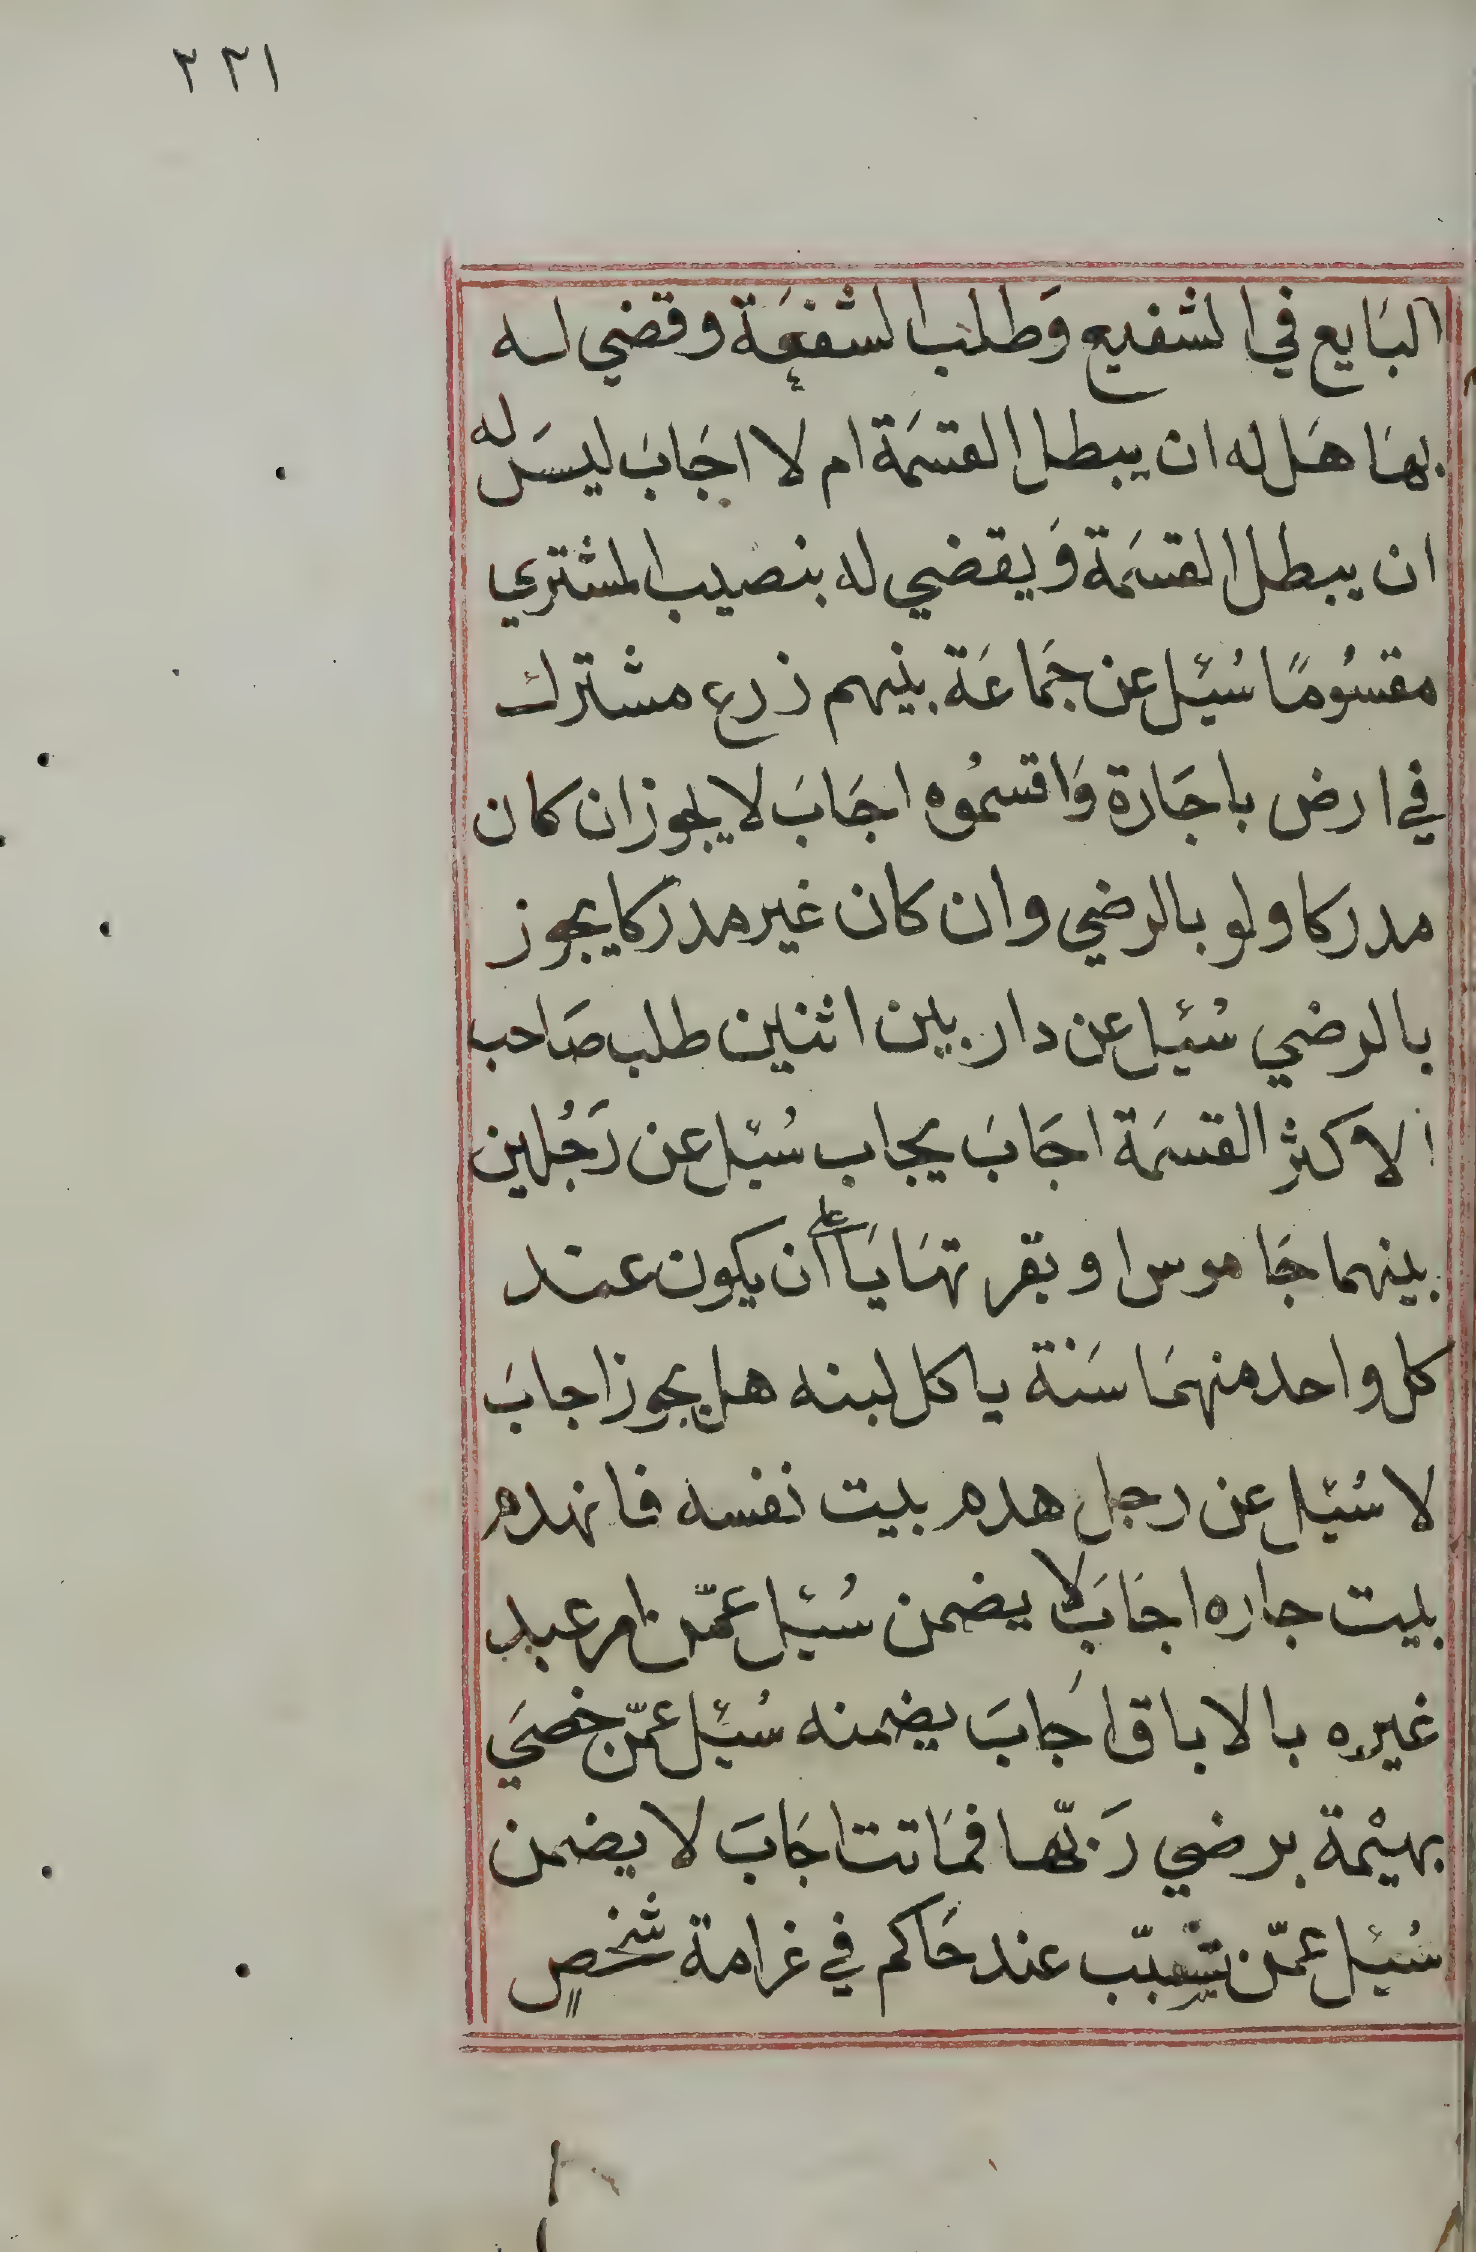 ٢٢١
البَايع في الشفيع وَطلبَ الشفعَة وقضي له
بهَا هَل له ان يبطل القسمَة ام لا اجَابَ ليسَ له
ان يبطل القسمَة وَيقضي له بنصيب المشتري
مقسُومًا سُئل عن جَماعَة بينهم زرع مشترك
في ارض باجَارة وَاقسمُوه اجَابَ لا يجوز ان كان
مدركا ولو بالرضي وان كان غير مدركا يجوز
بالرضي سُئل عن دار بين اثنين طلب صَاحب
الاكثر القسمَة اجَابَ يجاب سُئل عن رَجُلين
بينهما جَاموسا وبقر تهَايَا علي ان يكون عند
كل واحد منهمَا سَنة ياكل لبنه هل يجوز اجابَ
لا سُئل عن رجل هدم بيت نفسه فانهدم
بيت جاره اجَابَ لا يضمن سُئل عمّن امر عبد
غيره بالاباق اجَابَ يضمنه سُئل عمّن خصَي
بهيْمة برضي رَبّها فمَاتت اجَابَ لا يضمن
سُئل عمّن تسبّب عند حَاكم في غرامة شخصٍ